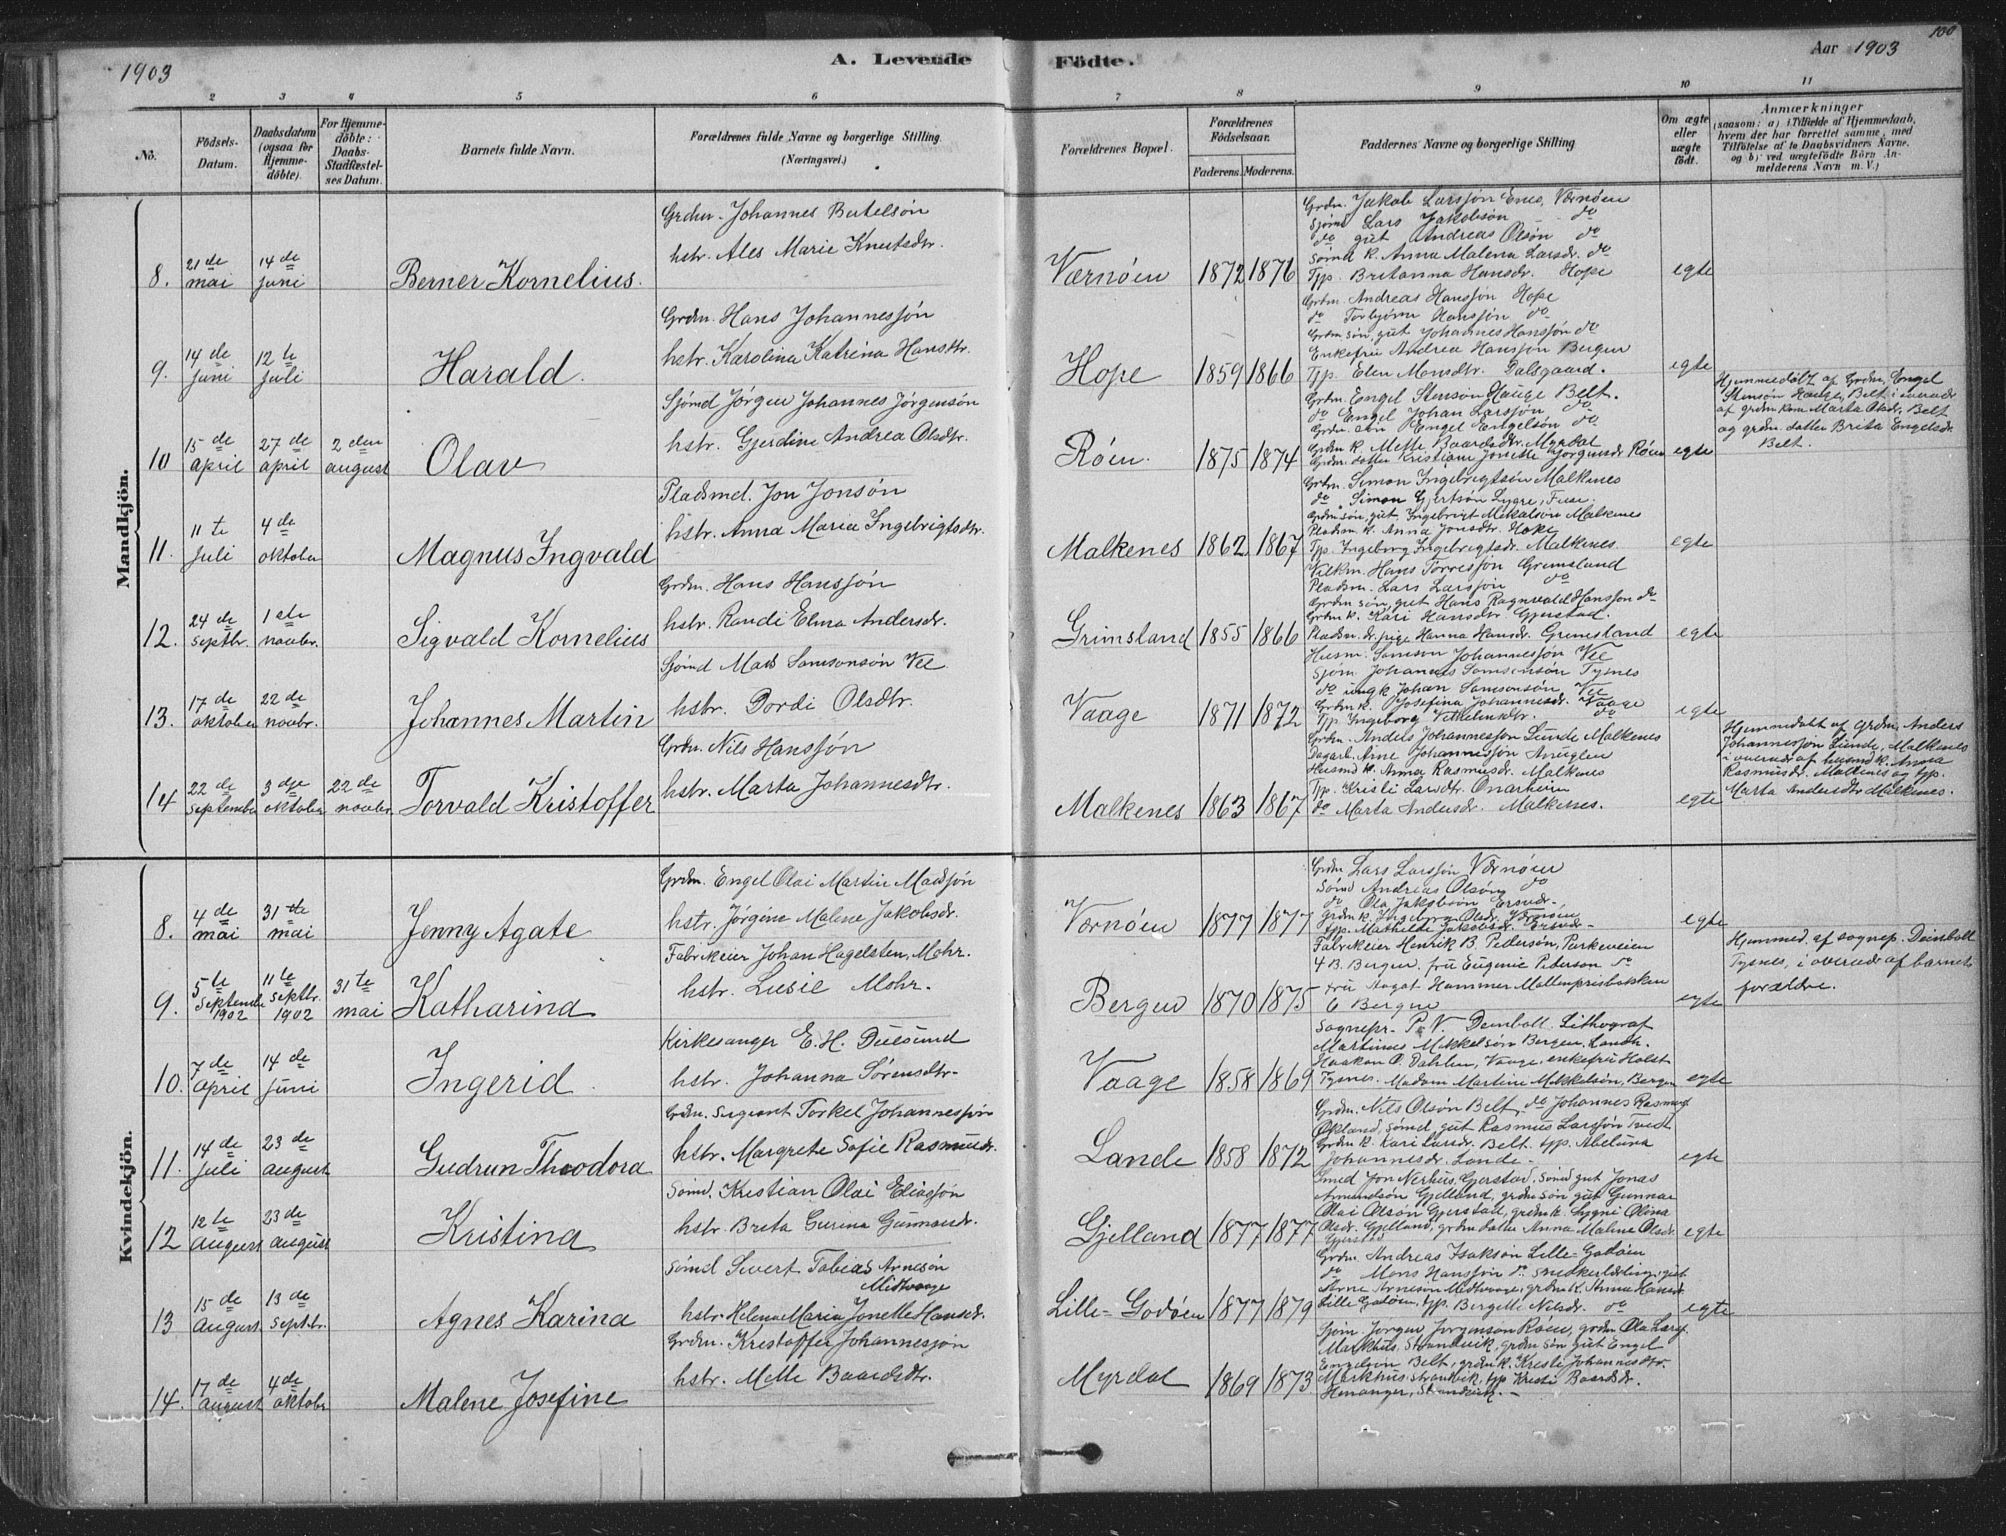 1903
A. Levende
Födte.
Aar 1903
100
2 3 4 5 6 7 8 9 10 11
No.
Födsels-Datum.
Daabsdatum (ogsaa for Hjemmedöbte).
For Hjemmedöbte: Daabs-Stadfæstelses Datum.
Barnets fulde Navn.
Forældrenes fulde Navne og borgerlige Stilling.
(Næringsvei.)
Forældrenes Bopæl.
Forældrenes Födselsaar.
Faderens. Moderens.
Faddernes Navne og borgerlige Stilling
Om ægte eller uægte födt.
Anmærkninger
(saasom: a) i Tilfælde af Hjemmedaab,
hvem der har forrettet samme, med
Tilföielse af to Daabsvidners Navne,
og b) ved uægtefödte Börn An-
melderens Navn m. V.)
Mandkjön.
8. 21de mai 14de juni Berner Kornelius.
Grdm. Johannes Bertelsøn
hstr. Ales Marie Knutsdtr.
Værnøen 1872 1876
Grdm. Jakob Larssøn Enes, Værnøen
Sjømd Lars Jakobsøn do
do gut Andreas Olsøn do
Sømd k. Anna Malena Larsdr. do
Tjp. Britanna Hansdr. Hope
egte
9. 14de juni 12te juli Harald.
Grdm. Hans Johannessjøn
hstr. Karolina Katrina Hansdtr.
Hope 1859 1866
Grdm. Andreas Hanssjøn Hope
do Torbjørn Hanssjøn do
Grdm søn, gut Johannes Hanssjøn do
Enkefru Andrea Hanssjøn Bergen
Tjp. Elen Monsdtr. Dalsgaard.
egte
10 15de april 27de april 2den august Olav
Sjømd Jørgen Johannes Jørgensøn
hstr. Gjerdine Andrea Olsdtr.
Røen. 1875 1874
Grdm. Engel Stensøn Hauge Belt.
do Engel Johan Larssjøn do
Grdm. søn Engel Engelsøn do
Grdm k. Mette Baardsdtr. Myrdal
Grdm. datter Kristiane Jonette Jørgensdr Røen
egte
Hjemmedøbt af Grdm. Engel
Stensøn Hauge, Belt i overvær
af grdm kone Marta Olsdr. Belt
og grdm. datter Brita Engelsdr.
Belt.
11. 11te juli 4de oktober Magnus Ingvald
Pladsmd. Jon Jonsøn
hstr. Anna Maria Ingebrigtsdtr.
Malkenes 1862 1867
Grdm. Simon Ingebrigtsøn Malkenes
do Simon Gjertsøn Lygre, Fuse.
Grdm søn, gut Ingebrigt Mikalsøn Malkenes
Pladsm k. Anna Jonsdtr. Hope
Tjp. Ingeborg Ingebrigtsdr. Malkenes.
egte
12. 24de septbr. 1ste novbr. Sigvald Kornelius
Grdm. Hans Hanssjøn
hstr. Randi Elma Andersdr.
Grimsland 1855 1866
Hans Torressjøn Grimsland
Pladsm. Lars Larssjøn do
Grdm søn, gut Hans Ragnvald Hanssøn do
Grdm k. Kari Hansdtr. Gjerstad.
Pladsm. dr. pige Hanna Hansdr. Grimsland
egte
13. 17de oktober 22de novbr. Johannes Martin
Sjømd Mads Samsonsøn Vee
hstr. Dordi Olsdtr.
Vaage 1871 1872
Husm. Samson Johannessjøn Vee
Sjøm. Johannes Samsonsøn Tysnes
do ungk. Johan Samsonsøn Vee
Grdm k. Josefina Johannesdr. Vaage
Tjp. Ingeborg Vilhelmsdtr. do
egte
14 22de september 3die oktober 22de novbr. Torvald Kristoffer
Grdm. Nils Hanssjøn
hstr. Marta Johannesdtr.
Malkenes 1863 1867
Grdm. Anders Johannessøn Lunde Malkenes
Dagarb. Arne Johannessjøn Anuglen
Husmd k. Anna Rasmusdr. Malkenes
Tjp. Kristi Larsdtr. Onarheim
do Marta Andersdr. Malkenes.
egte
Hjemmedøbt af Grdm. Anders
Johannessjøn Lunde, Malkenes
i overvær af husmd k. Anna
Rasmusdr. Malkenes og tjp.
Marta Andersdtr Malkenes.
Kvindekjön.
8. 4de mai 31te mai Jenny Agate
Grdm. Engel Olai Martin Madssjøn
hstr. Jørgine Malene Jakobsdr.
Værnøen 1877 1877
Grdm. Lars Larssjøn Værnøen
Sømd Andreas Olsøn do
do Ola Jakobsøn Ersvær.
Grdm k. Ingeborg Olsdr. Værnøen
Tjp. Mathilde Jakobsdr. Ersvær
egte
9. 5te septembr 1902 11te septbr. 1902 31te mai Katharina
Fabrikeier Johan Hagelsten Mohr.
hstr. Lusie Mohr.
Bergen 1870 1875
Fabrikeier Henrik B. Pedersøn, Parkeveien
4 B. Bergen, fru Eugenie Pederson do
fru Aagot Hammer Møllenprisbakken
6 Bergen
egte
Hjemmed. af sognep. Deinboll
Tysnes, i overvær af barnets
forældre.
10. 7de april 14de juni Ingerid.
Kirkesanger E. H. Duesund
hstr. Johanna Sørensdtr.
Vaage 1858 1869
Sognepr. P. V. Deinboll. Lithograf
Martinus Mikkelsøn Bergen, Landh.
Haakon O. Dahlen, Vaage, enkefru Holst
Tysnes. Madam Martine Mikkelsøn, Bergen
egte
11. 14de juli 23de august Gudrun Theodora
Grdm. sergeant Torkel Johannessjøn
hstr. Margrete Sofie Rasmusdr.
Lande 1858 1872
Grdm. Nils Olsøn Belt, do Johannes Rasmus
Økland, Sømd, gut Rasmus Larssjøn
Grdm k. Kari Larsdr. Belt. tjp. Abeluna
Johannesdr. Lande
egte
12 12te august 23de august Kristina
Sømd. Kristian Olai Eliassjøn
hstr. Brita Gurina Gunnarsdr.
Gjelland 1877 1877
Smed Jon Nerhus, Gjerstad, Sømd gut Jonas
Amundsøn Gjelland, grdm søn gut Gunnar
Olai Olsøn Gjerstad, grdm k. Sygni Olina
Olsdr. Gjelland, grdm datter Anna Malene Olsdr.
Gjerstad
egte
13 15de august 13de septbr. Agnes Karina
Sømd Sivert Tobias Arnesøn
Midtvaage
hstr. Helena Maria Jonette Hansdr.
Lille-Godøen 1877 1879
Grdm. Andreas Isaksøn Lille-Godøen
do Mons Hanssjøn do snedkerlærling, gut
Arne Arnesøn Midtvaage, grdm k. Anna Hansdr
Lille Godøen, tjp. Bergette Nilsdr. do
egte
14. 17de august 4de oktober Malene Josefine
Grdm. Kristoffer Johannessjøn
hstr. Mette Baardsdtr.
Myrdal 1869 1873
Sjøm Jørgen Jørgensøn Røen, grdm Ola Larss.
Markhus, Strandvik, grdm søn gut Engel
Engelsøn Belt, grdm k. Kristi Johannesdtr.
Markhus, Strandvik, tjp Kristi Baardsdr.
Henanger, Strandvik.